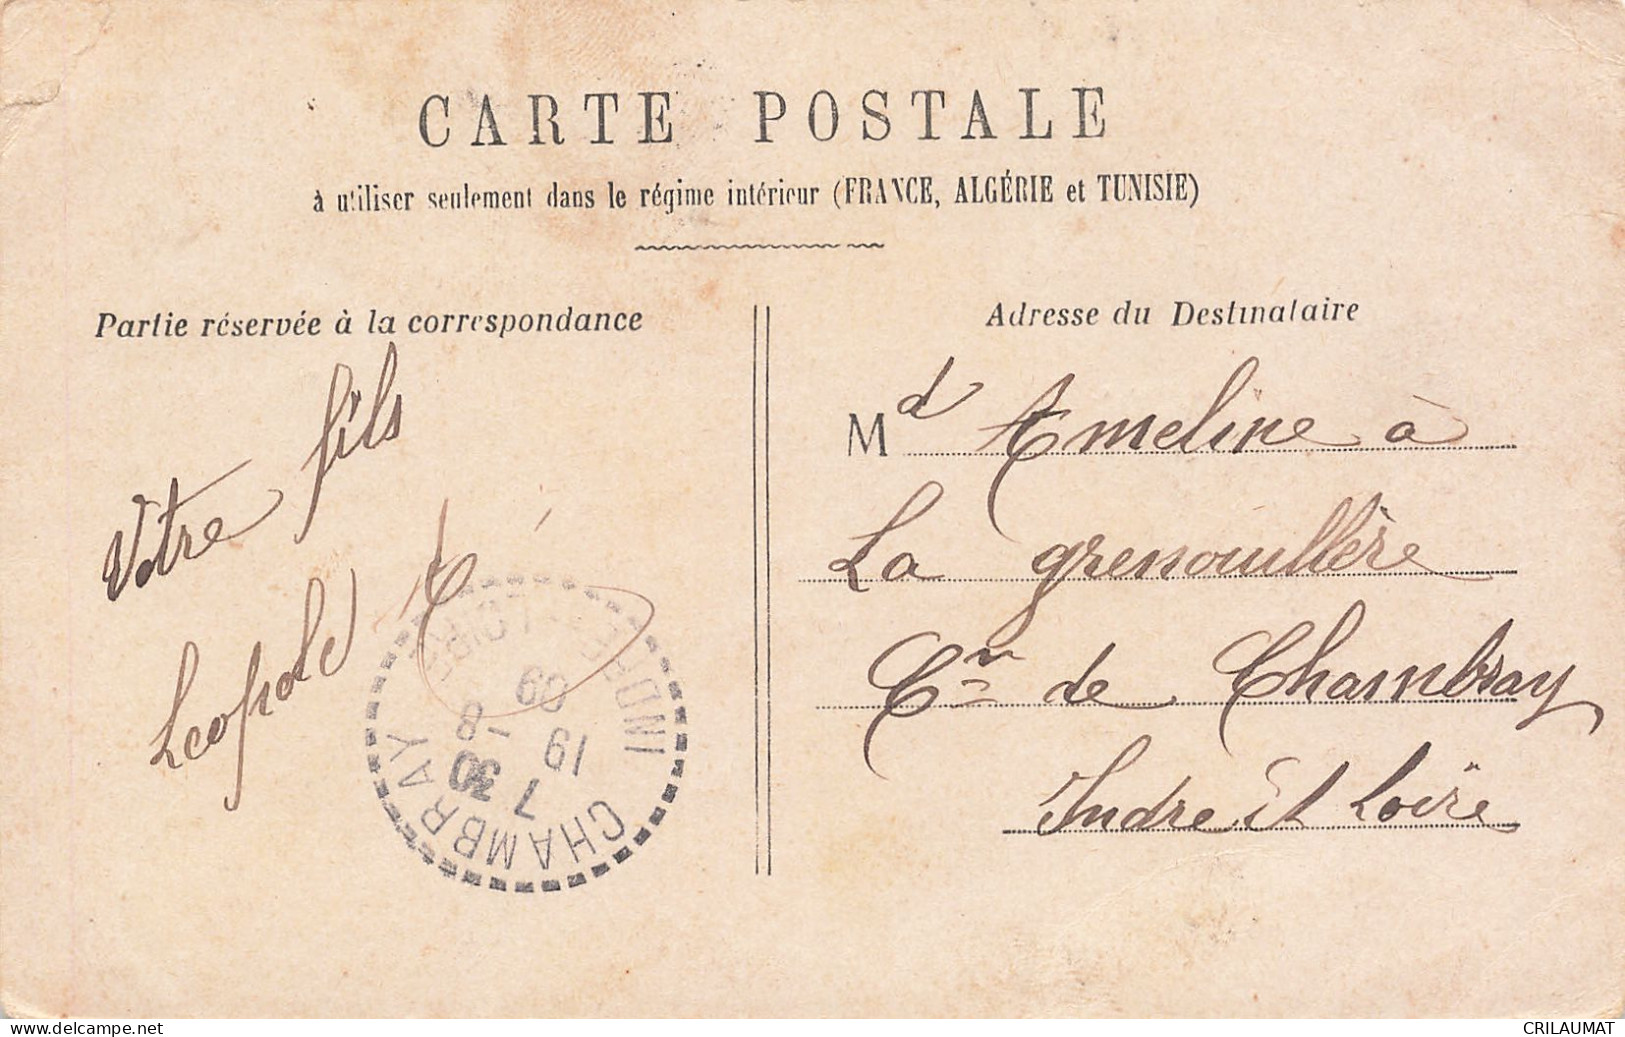 CARTE POSTALE
à utiliser seulement dans le régime intérieur (FRANCE, ALGÉRIE et TUNISIE)
Partie réservée à la correspondance
Votre fils
Leopold
Adresse du Destinataire
Md Ameline à
La grenouillère
Cne de Chambray
Indre et Loire
CHAMBRAY
INDRE-ET-LOIRE
7 30
19 -8
09
www.delcampe.net
CRILAUMAT